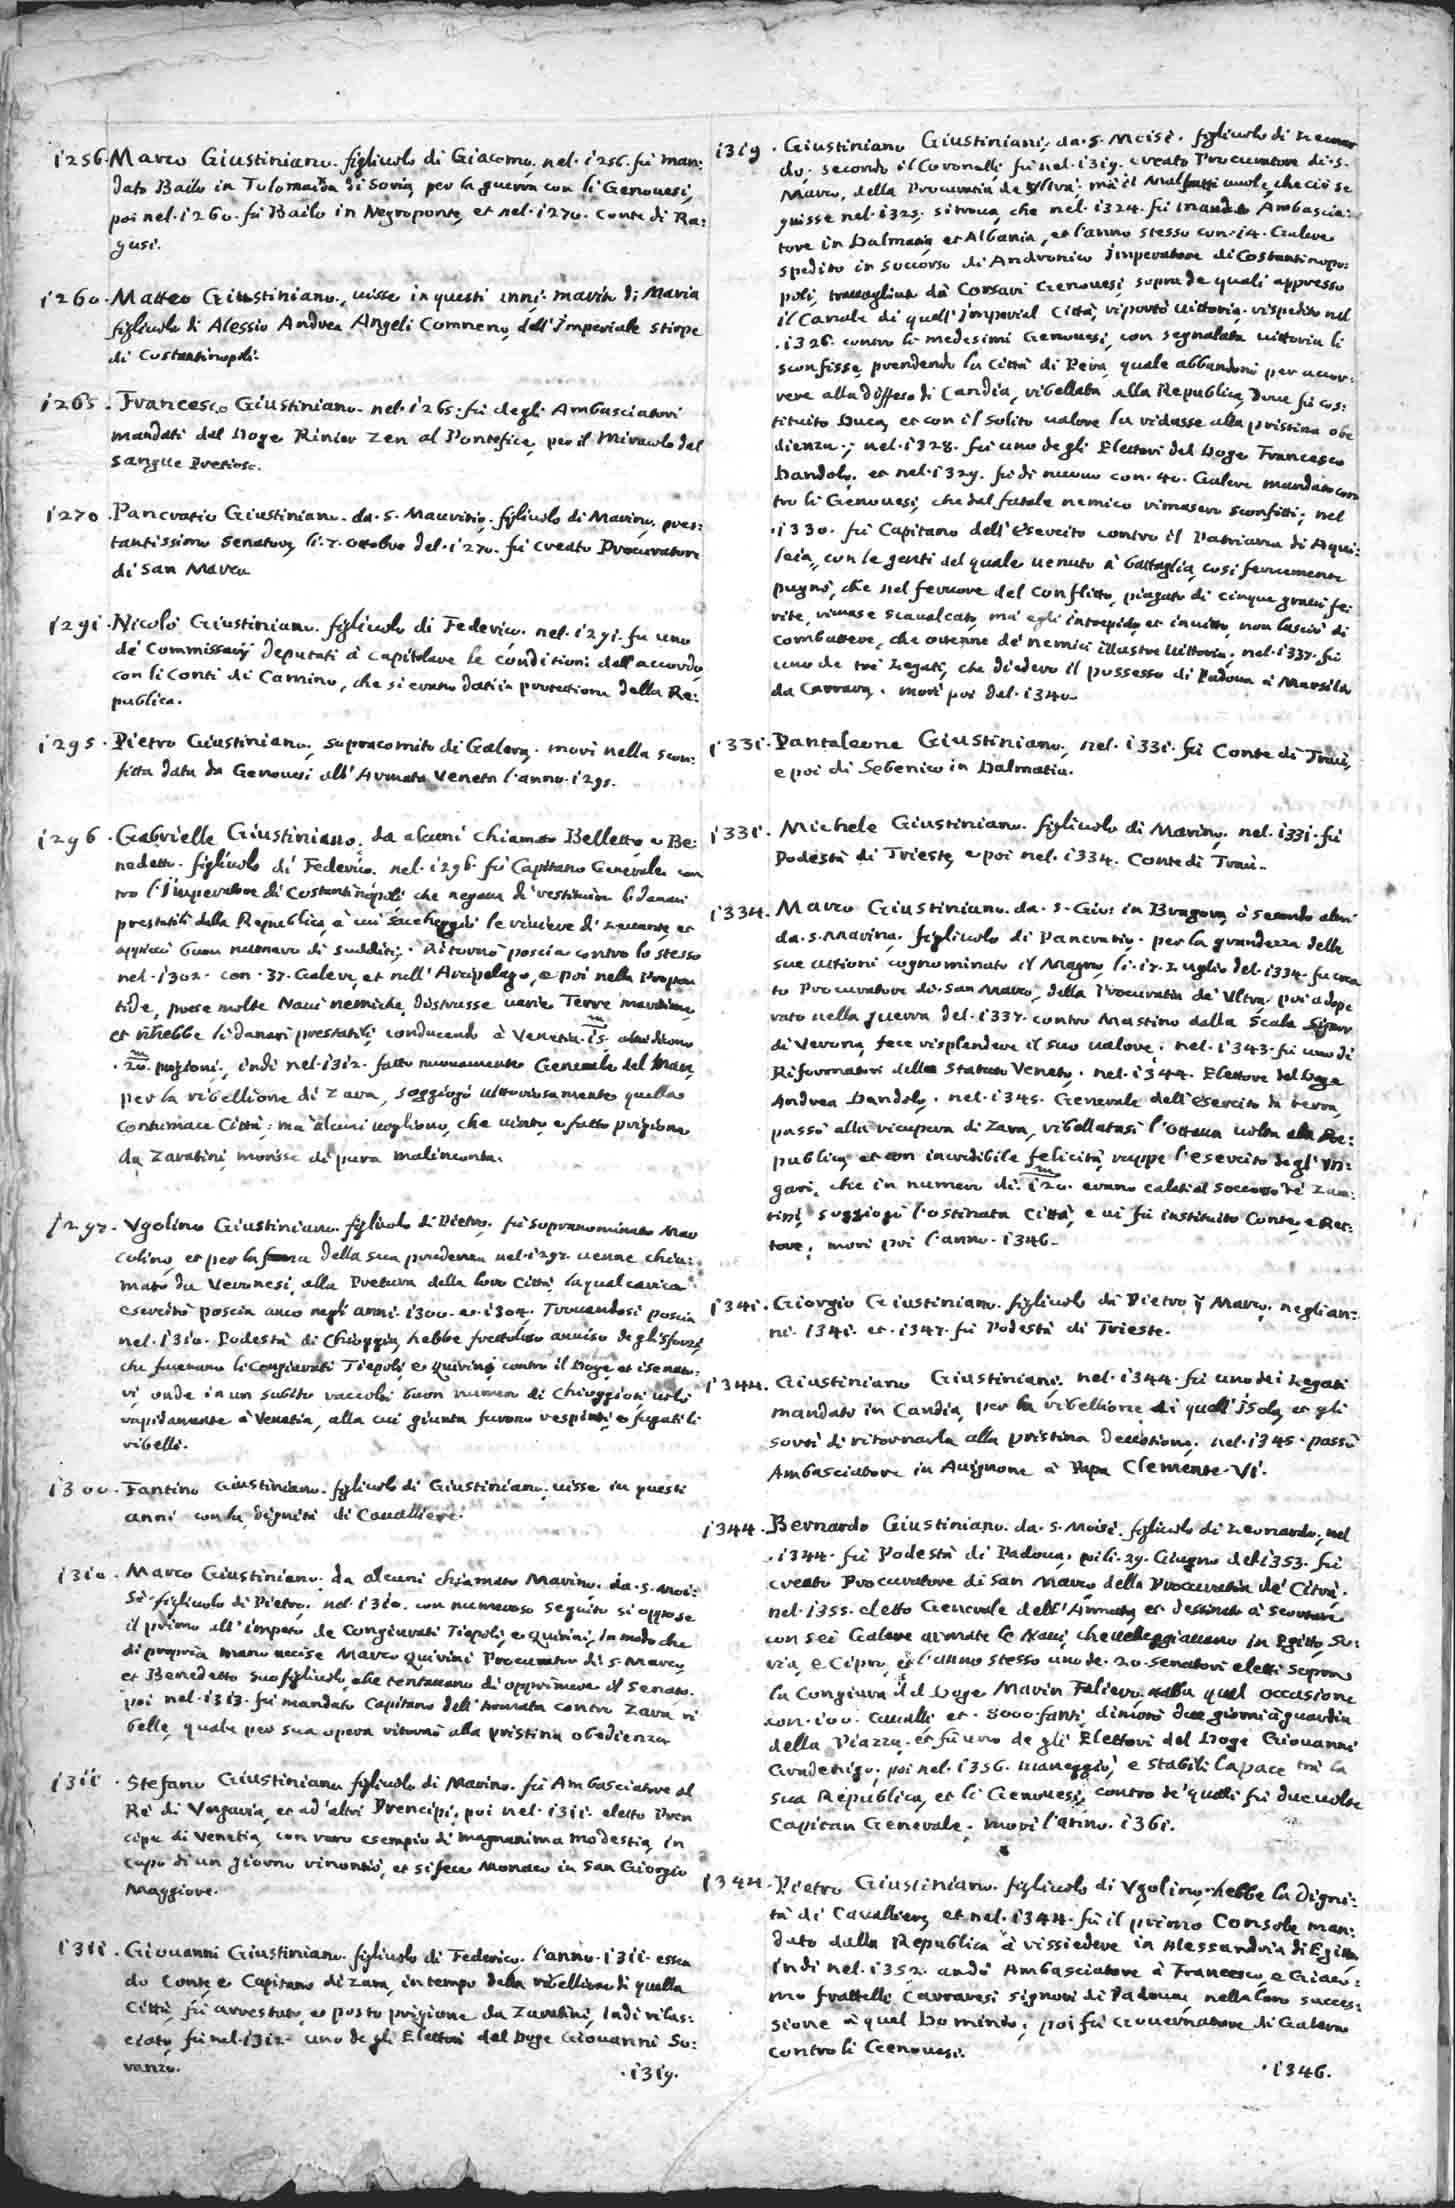 1256. Marco Giustiniano. figliuolo di Giacomo, nel. 1256. fù man:
dato Bailo in Tolomaida di Soria, per la guerra con li Genouesi,
poi nel. 1260. fù Bailo in Negroponte, et nel. 1270. Conte di Ra:
gusi.
1260. Matteo Giustiniano, uisse in questi anni. marito di Maria
figliuola di Alessio Andrea Angeli Comneno, dell'Imperiale stirpe
di Costantinopoli.
1265. Francesco Giustiniano. nel. 1265. fù degli Ambasciatori
mandati dal Doge Rinier Zen al Pontefice, per il Miracolo del
Sangue Pretioso.
1270. Pancratio Giustiniano. da. S. Mauritio. figliuolo di Marino, pres:
tantissimo Senatore, li. 7. ottobre del. 1270. fù Creato Procuratore
di San Marco
1291. Nicolò Giustiniano. figliuolo di Federico. nel. 1291. fù uno
dè Commissarij deputati à capitolare le conditioni dell'accordo
con li Conti di Camino, che si erano dati in protettione della Re:
publica.
1295. Pietro Giustiniano, sopracomito di Galera. morì nella scon:
fitta data da Genouesi all'Armata Veneta l'anno. 1295.
1296. Gabrielle Giustiniano. da alcuni chiamato Belletto, o Be:
nedetto. figliuolo di Federico. nel. 1296. fù Capitano Generale con
tro l'Imperatore di Costantinopoli che negaua di restituire li danari
prestatili dalla Republica, à cui saccheggiò le riuiere di leuante, et
buon numero di sudditi. Ritornò poscia contro lo stesso
nel. 1302. con. 37. Galere, et nell'Arcipelago, e poi nella Propon
tide, prese molte Naui nemiche, distrusse uarie Terre maritime,
et rihebbe li danari prestatili, conducendo à Venetia. 15.
m
. 20. prigioni, indi nel. 1312. fatto nuouamente Generale del Mare,
per la ribellione di Zara, soggiogò uittoriosamente quella
Contumace Città; mà alcuni uogliono, che uinto, e fatto prigione
da Zaratini, morisse di pura malinconia.
1297. Vgolino Giustiniano. figliuolo di Pietro, fù sopranominato Mar
colino, et per la fama della sua prudenza nel. 1297. uenne chia:
mato da Veronesi, alla Pretura della loro Città, la qual carica
esercitò poscia anco negli anni. 1300. et. 1304. Trouandosi poscia
nel. 1310. Podestà di Chioggia, hebbe frettoloso auuiso degli sforzi,
che faceuano li Congiurati Tiepoli, e Quirini contro il Doge, et i Senato:
ri, onde in un subito raccolti buon numero di Chioggioti, uolò
rapidamente à Venetia, alla cui giunta furono respinti, e fugati li
ribelli.
1300. Fantino Giustiniano. figliuolo di Giustiniano, uisse in questi
anni con la dignità di Caualliere.
1310. Marco Giustiniano. da alcuni chiamato Marino. da. S. Moi:
sè. figliuolo di Pietro. nel. 1310. con numeroso seguito si oppose
il primo all'impeto de Congiurati Tiepoli, e Quirini, in modo che
di propria mano uccise Marco Quirini Procurator di S. Marco,
et Benedetto suo figliuolo, che tentauano di opprimere il Senato.
poi nel. 1313. fù mandato Capitano dell'Armata contro Zara ri
belle, quale per sua opera ritornò alla pristina obedienza.
1311. Stefano Giustiniano figliuolo di Marino. fù Ambasciatore al
Rè di Vngaria, et ad'altri Prencipi, poi nel. 1311. eletto Pren
cipe di Venetia, con raro esempio di magnanima modestia, in
capo di un giorno rinontiò, et si fece Monaco in San Giorgio
Maggiore.
1311. Giouanni Giustiniano. figliuolo di Federico, l'anno. 1311. essen
do Conte, e Capitano di Zara, in tempo della ribellione di quella
Città, fù arrestato, e posto prigione da Zaratini, Indi rilas:
ciato, fù nel. 1312. uno degli Elettori del Doge Giouanni So:
ranzo.
. 1319.
1319. Giustiniano Giustiniani, da. S. Moisè. figliuolo di Leonar
do, secondo il Coronelli, fù nel. 1319. creato Procuratore di. S.
Marco, della Procuratia de Vltra. mà il Malfatti uuole, che ciò se
guisse nel. 1323. si troua, che nel. 1324. fù mandato Ambascia:
tore in Dalmatia, et Albania, et l'anno stesso con. 14. Galere
spedito in soccorso di Andronico Imperatore di Costantinopo:
poli, trauagliato da Corsari Genouesi, sopra de quali appresso
il Canale di quell'Imperial Città, riportò uittoria. rispedito nel
. 1326. contro li medesimi Genouesi, con segnalata uittoria li
sconfisse, prendendo la Città di Pera, quale abbandonò per accor:
rere alla diffesa di Candia, ribellata alla Republica, doue fù cos:
tituito Duca, et con il solito ualore la ridusse alla pristina obe
dienza.; nel. 1328. fù uno degli Elettori del Doge Francesco
Dandolo. et nel. 1329. fù di nuouo con. 40. Galere mandato con
tro li Genouesi, che dal fatale nemico rimasero sconfitti; nel
. 1330. fù Capitano dell'Esercito contro il Patriarca di Aqui:
leia, con le genti del quale uenuto à battaglia, così feruemente
pugnò, che nel feruore del conflitto, piagato di cinque graui fe:
rite, rimase scaualcato, mà egli intrepido, et inuitto, non lasciò di
combattere, che ottenne dè nemici illustre uittoria; nel. 1337. fù
uno de trè Legati, che diedero il possesso di Padoua à Marsilio
da Carrara. morì poi del. 1340.
1331. Pantaleone Giustiniano, nel. 1331. fù Conte di Traù,
e poi di Sebenico in Dalmatia.
1331. Michele Giustiniano. figliuolo di Marino, nel. 1331. fù
Podestà di Trieste, e poi nel. 1334. Conte di Traù.
1334. Marco Giustiniano. da. S. Gio: in Bragora, ò secondo altri
da. S. Marina. figliuolo di Pancratio. per la grandezza delle
sue attioni cognominato il Magno, li. 17. Luglio del. 1334. fù crea
to Procuratore di. San Marco, della Procuratia de' Vltra. poi adope
rato nella guerra del. 1337. contro Mastino dalla Scala Signor
di Verona, fece risplendere il suo ualore. nel. 1343. fù uno di
Riformatori dello Statuto Veneto. nel. 1344. Elettore del Doge
Andrea Dandolo. nel. 1345. Generale dell'Esercito da terra,
passò alla ricupera di Zara, ribellatasi l'ottaua uolta alla Re:
publica, et con incredibile felicità, ruppe l'esercito degl'Vn:
m
gari, che in numero di. 120. erano calati al soccorso de' Zara:
tini, soggiogò l'ostinata Città, e ui fù instituito Conte, e Ret:
tore; morì poi l'anno. 1346.
1341. Giorgio Giustiniano. figliuolo di Pietro Marco, negli an:
ni. 1341. et. 1347. fù Podestà di Trieste.
1344. Giustiniano Giustiniani. nel. 1344. fù uno dei Legati
mandato in Candia, per la ribellione di quell'Isola, et gli
sortì di ritornarla alla pristina deuotione. nel. 1345. passò
Ambasciatore in Auignone à Papa Clemente. VI.
1344. Bernardo Giustiniano. da. S. Moisè. figliuolo di Leonardo, nel
. 1344. fù Podestà di Padoua, poi li. 29. Giugno del. 1353. fù
creato Procuratore di San Marco della Procuratia dè Citra.
nel. 1355. eletto Generale dell'Armata, et destinato à scortare
con sei Galere armate le Naui, che ueleggiauano in Egitto, So:
ria, e Cipro, et l'anno stesso uno de. 20. Senatori eletti sopra
la Congiura del Doge Marin Faliero, nella qual occasione
con. 100. Caualli et. 8000. fanti, dimorò due giorni à guardia
della Piazza. et fù uno de gli Elettori del Doge Giouanni
Gradenigo. poi nel. 1356. maneggiò, e stabilì la pace trà la
sua Republica, et li Genouesi, contro de' quali fù due uolte
Capitan Generale. morì l'anno. 1361.
1344. Pietro Giustiniano. figliuolo di Vgolino, hebbe la digni:
tà di Caualliere, et nel. 1344. fù il primo Console man:
dato dalla Republica à rissiedere in Alessandria di Egitto,
indi nel. 1352. andò Ambasciatore à Francesco, e Giaco:
mo fratelli Carraresi signori di Padoua, nella loro succes:
sione à quel Dominio; poi fù Gouernatore di Galera
contro li Genouesi.
. 1346.